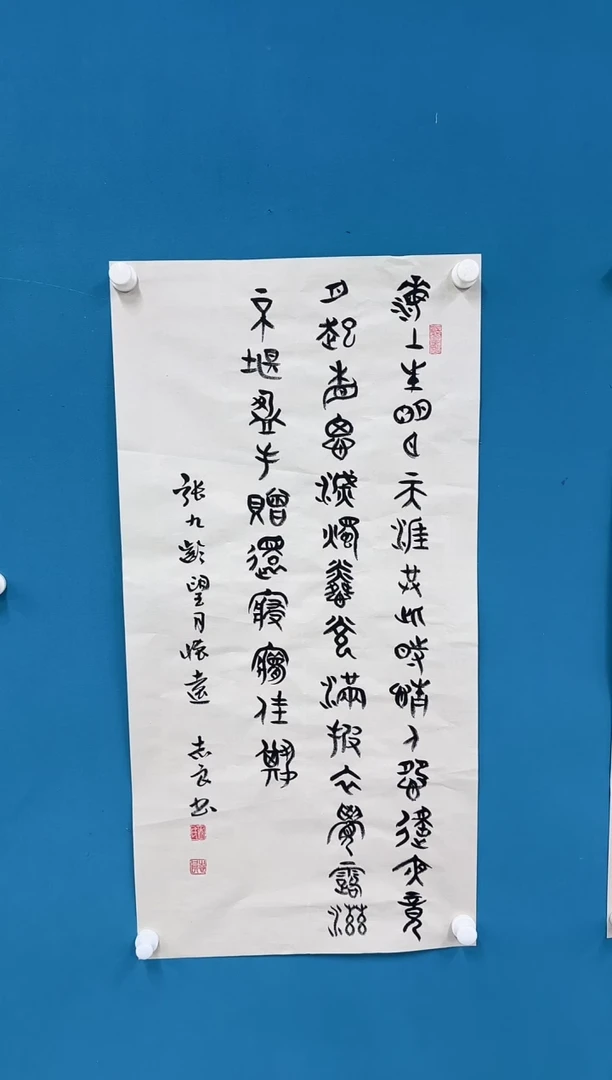 海上生明月天涯共此時情人怨遙夜竟
夕起相思滅燭憐光滿披衣覺露滋
不堪盈手贈還寢夢佳期
張九齡望月懷遠 志良书